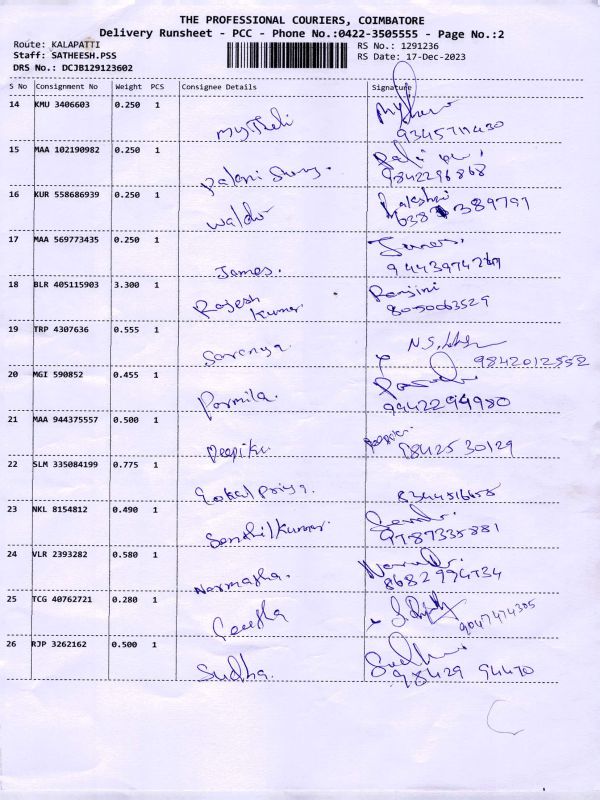 THE PROFESSIONAL COURIERS, COIMBATORE
Delivery Runsheet - PCC - Phone No.:0422-3505555 - Page No.:2
Route: KALAPATTI
RS No.: 1291236
Staff: SATHEESH.PSS
RS Date: 17-Dec-2023
DRS No.: DCJB129123602
S No Consignment No Weight PCS Consignee Details Signature
14 KMU 3406603 0.250 1
9345711430
15 MAA 102190982 0.250 1
9842296868
16 KUR 558686939 0.250 1
389791
17 MAA 569773435 0.250 1 James.
James.
18 BLR 405115903 3.300 1 Rajesh Ranjini
Kumar 8050063529
19 TRP 4307636 0.555 1
Saranya. 9842012552
20 MGI 590852 0.455 1
Parmila. 9942294980
21 MAA 944375557 0.500 1
Deepika 9842530129
22 SLM 335084199 0.775 1
Gokulpriya.
23 NKL 8154812 0.490 1
Senthilkumar. 9787335881
24 VLR 2393282 0.580 1
Narmatha.
25 TCG 40762721 0.280 1
9047474305
26 RJP 3262162 0.500 1
Sudha. 98429 94470